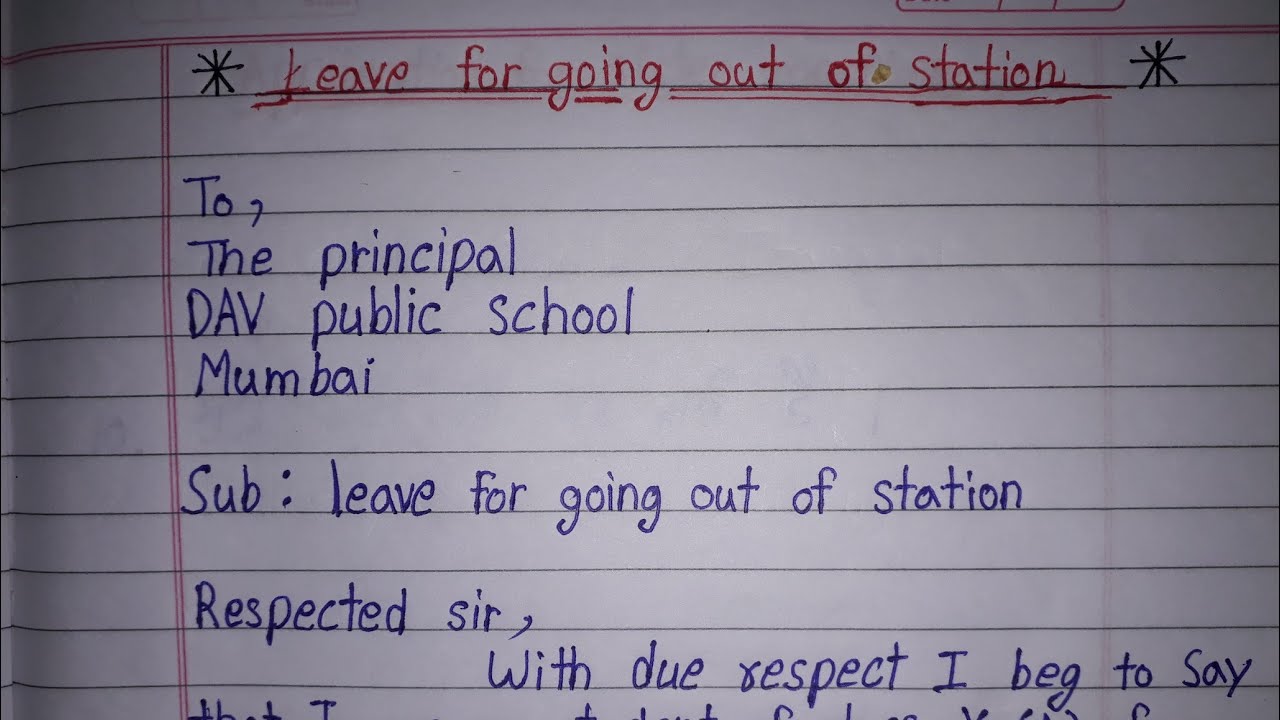 * Leave for going out of station *
To,
The principal
DAV public school
Mumbai
Sub: leave for going out of station
Respected sir,
With due respect I beg to say
that I